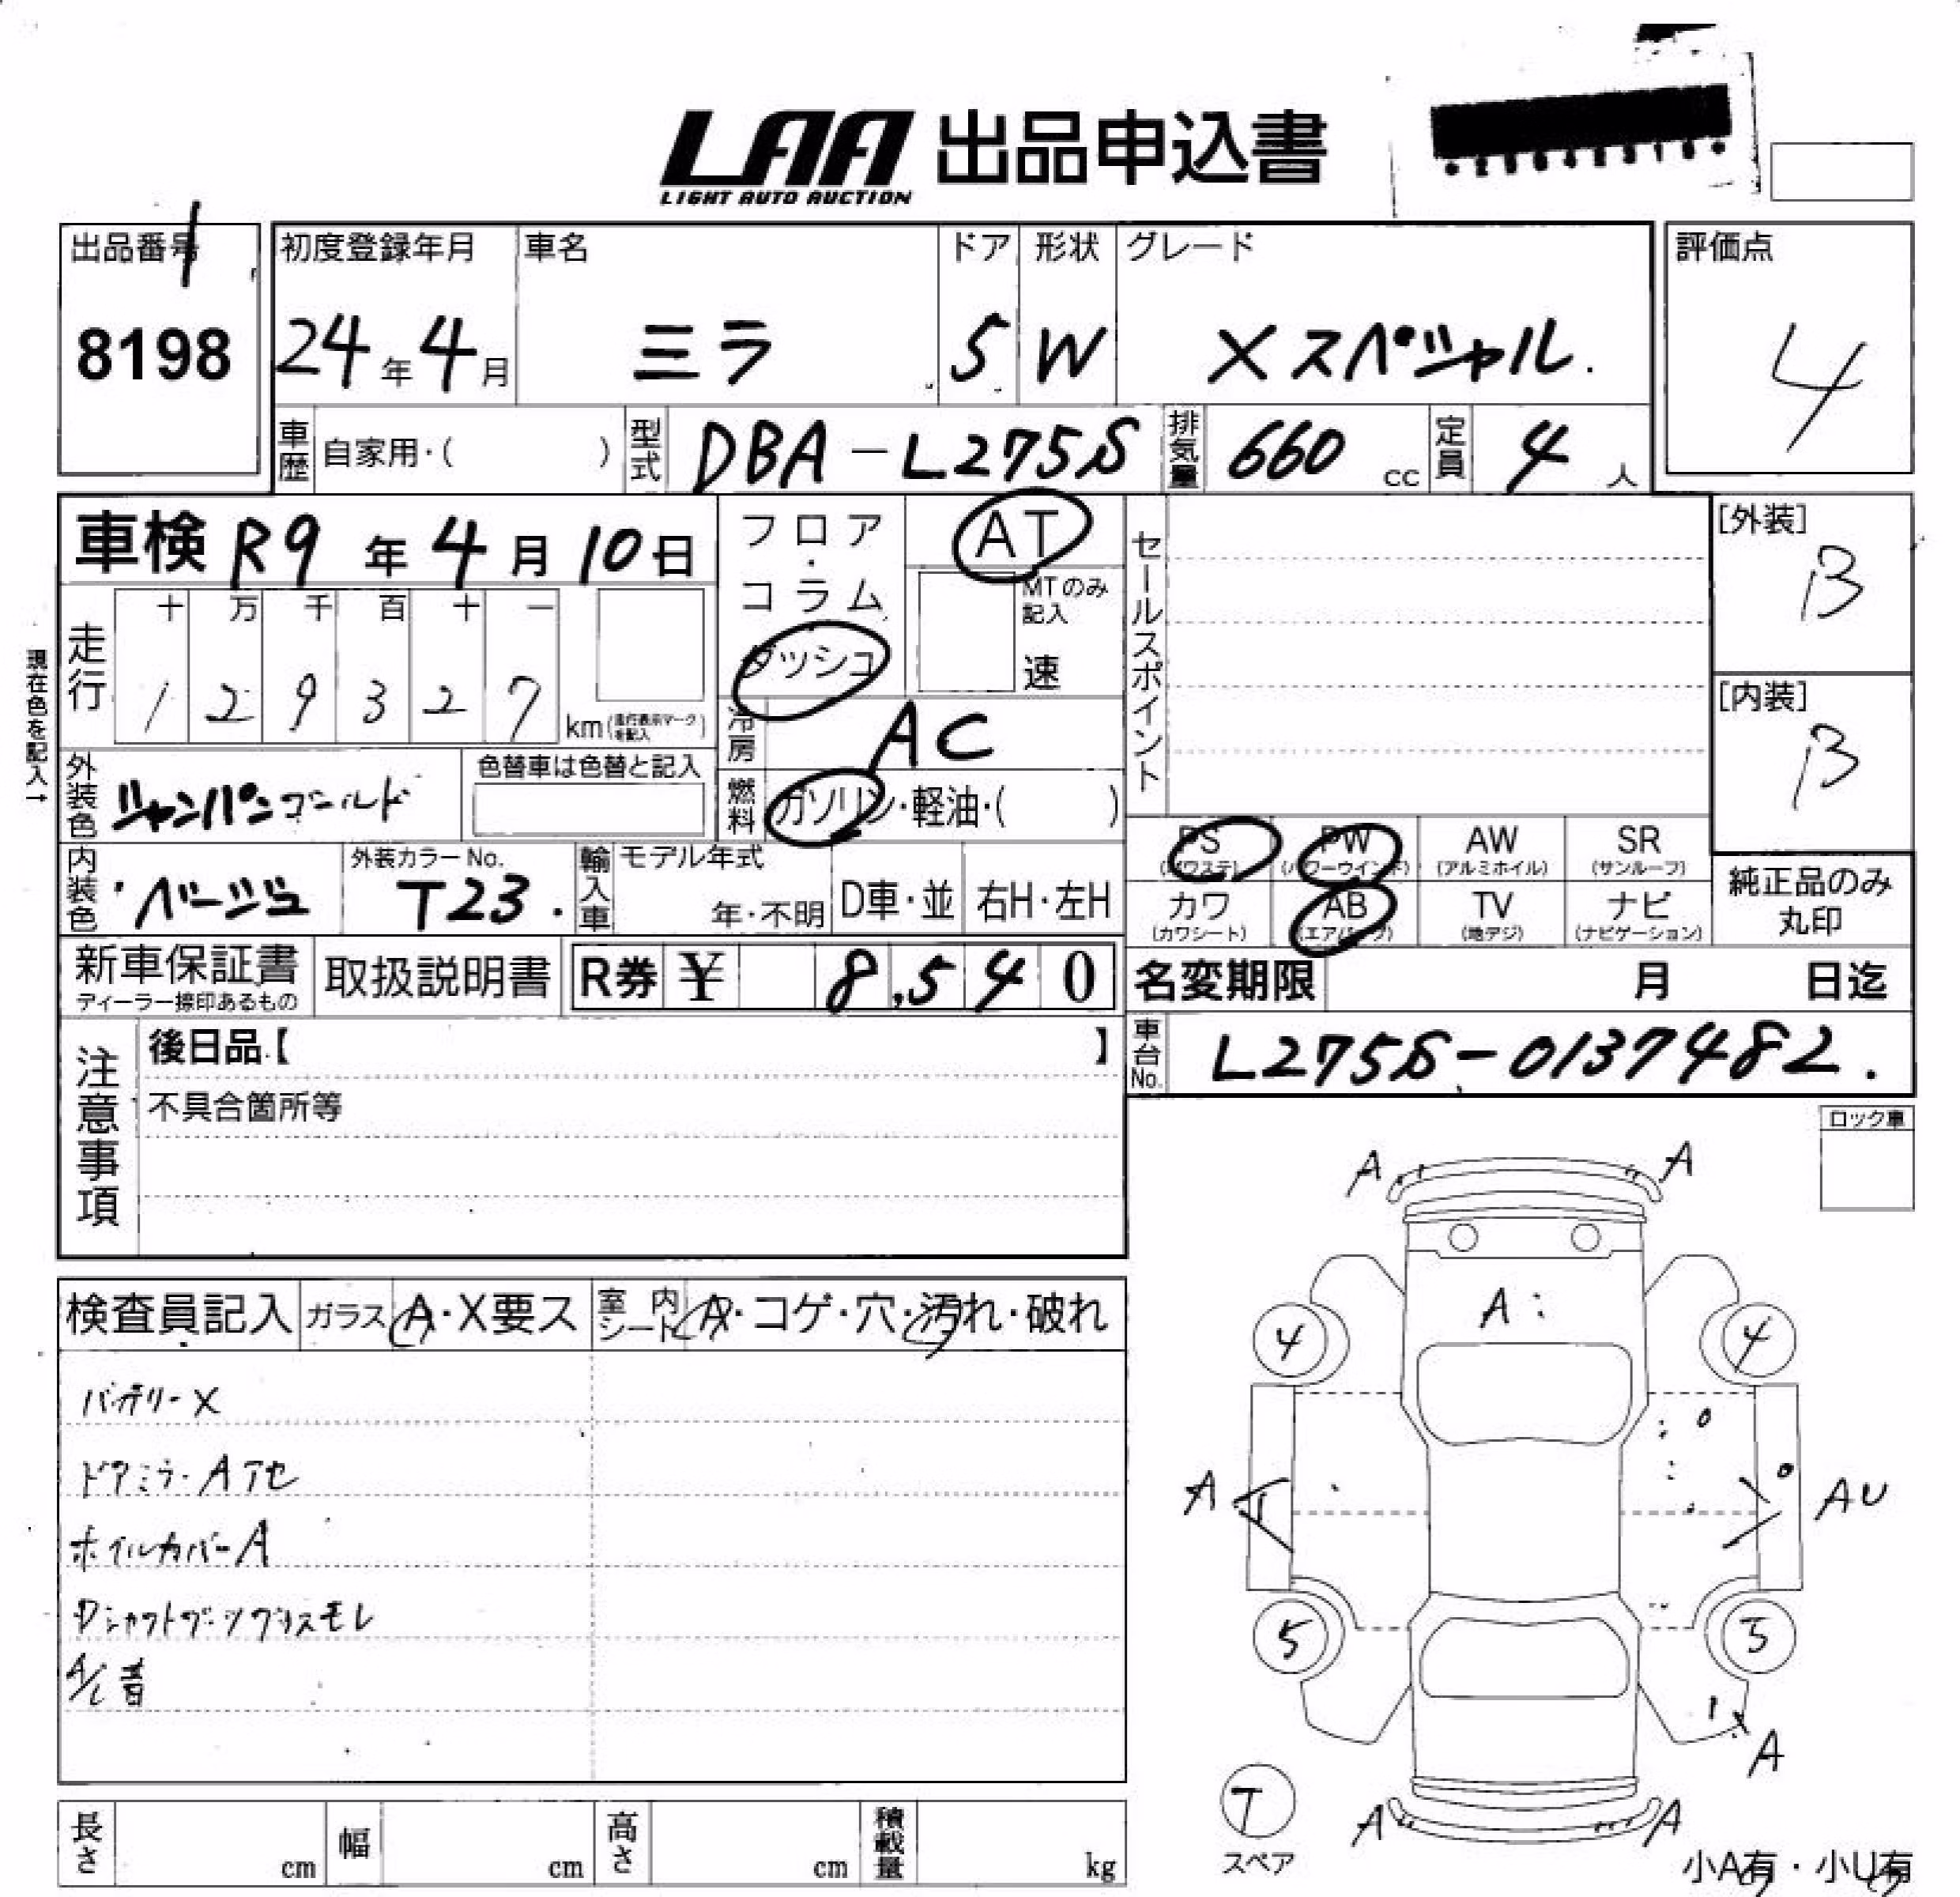 LAA 出品申込書
LIGHT AUTO AUCTION
出品番号
1
8198
初度登録年月
24年4月
車名
ミラ
ドア
5
形状
W
グレード
Xスペシャル.
評価点
4
車歴 自家用・( )
型式 DBA-L275S
排気量 660 cc
定員 4人
車検 R9年4月10日
フロア・コラム
ダッシュ
AT
MTのみ記入
速
セールスポイント
[外装]
B
[内装]
B
現在色を記入→
走行
十 万 千 百 十 一
1 2 9 3 2 7 km(走行表示マークを記入)
冷房 AC
外装色 シャンパンゴールド
色替車は色替と記入
燃料 ガソリン・軽油・( )
内装色 ベージュ
外装カラーNo.
T23.
輸入車 モデル年式
年・不明
D車・並
右H・左H
PS (パワステ)
PW (パワーウインド)
AW (アルミホイル)
SR (サンルーフ)
カワ (カワシート)
AB (エアバック)
TV (地デジ)
ナビ (ナビゲーション)
純正品のみ
丸印
新車保証書
ディーラー捺印あるもの
取扱説明書
R券 ¥ 8,540
名変期限 月 日迄
車台No. L275S-0137482.
注意事項
後日品【 】
不具合箇所等
ロック車
検査員記入
ガラス A・X要ス
室内シート A・コゲ・穴・汚れ・破れ
バッテリーX
ドアミラーAアセ
ホイルカバーA
Dシャフトブーツグリスモレ
A/C音
A A
A
4 4
A AU
5 5
A
T
スペア
A A
小A有・小U有
長さ cm
幅 cm
高さ cm
積載量 kg